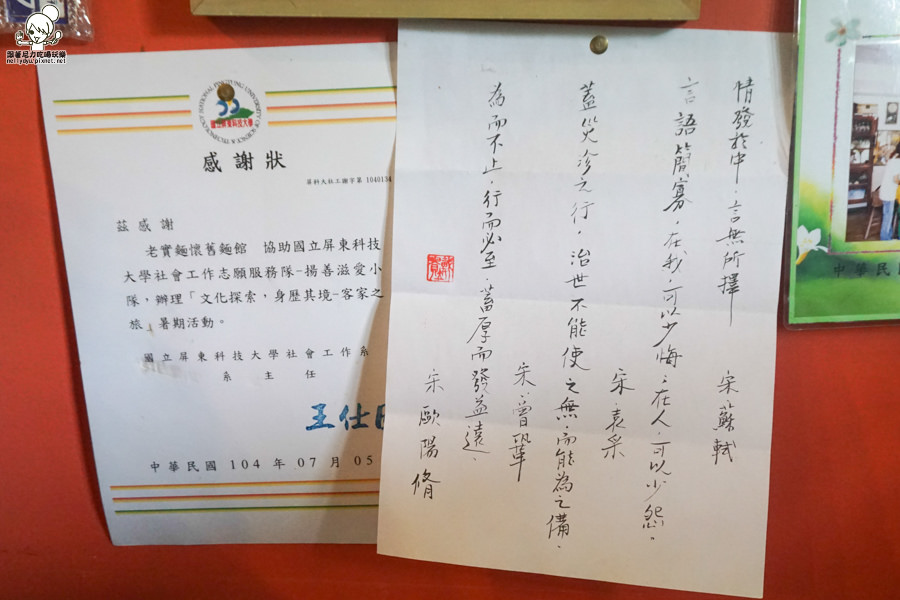 跟著尼力吃喝玩樂
nellydyu.pixnet.net
NATIONAL PINGTUNG UNIVERSITY OF SCIENCE & TECHNOLOGY
國立屏東科技大學
感謝狀
屏科大社工謝字第 1040134
茲感謝
老實麵懷舊麵館 協助國立屏東科技
大學社會工作志願服務隊-揚善滋愛小
隊,辦理「文化探索,身歷其境-客家之
旅」暑期活動。
國立屏東科技大學社會工作系
系 主 任
王仕
中華民國 104 年 07 月 05
情發於中,言無所擇 宋 蘇軾
言語簡寡,在我,可以少悔;在人,可以少怨。
宋 袁采
蓋災沴之行,治世不能使之無,而能為之備.
宋 曾鞏
為而不止,行而必至.蓄厚而發益遠.
宋 歐陽脩
中華民國